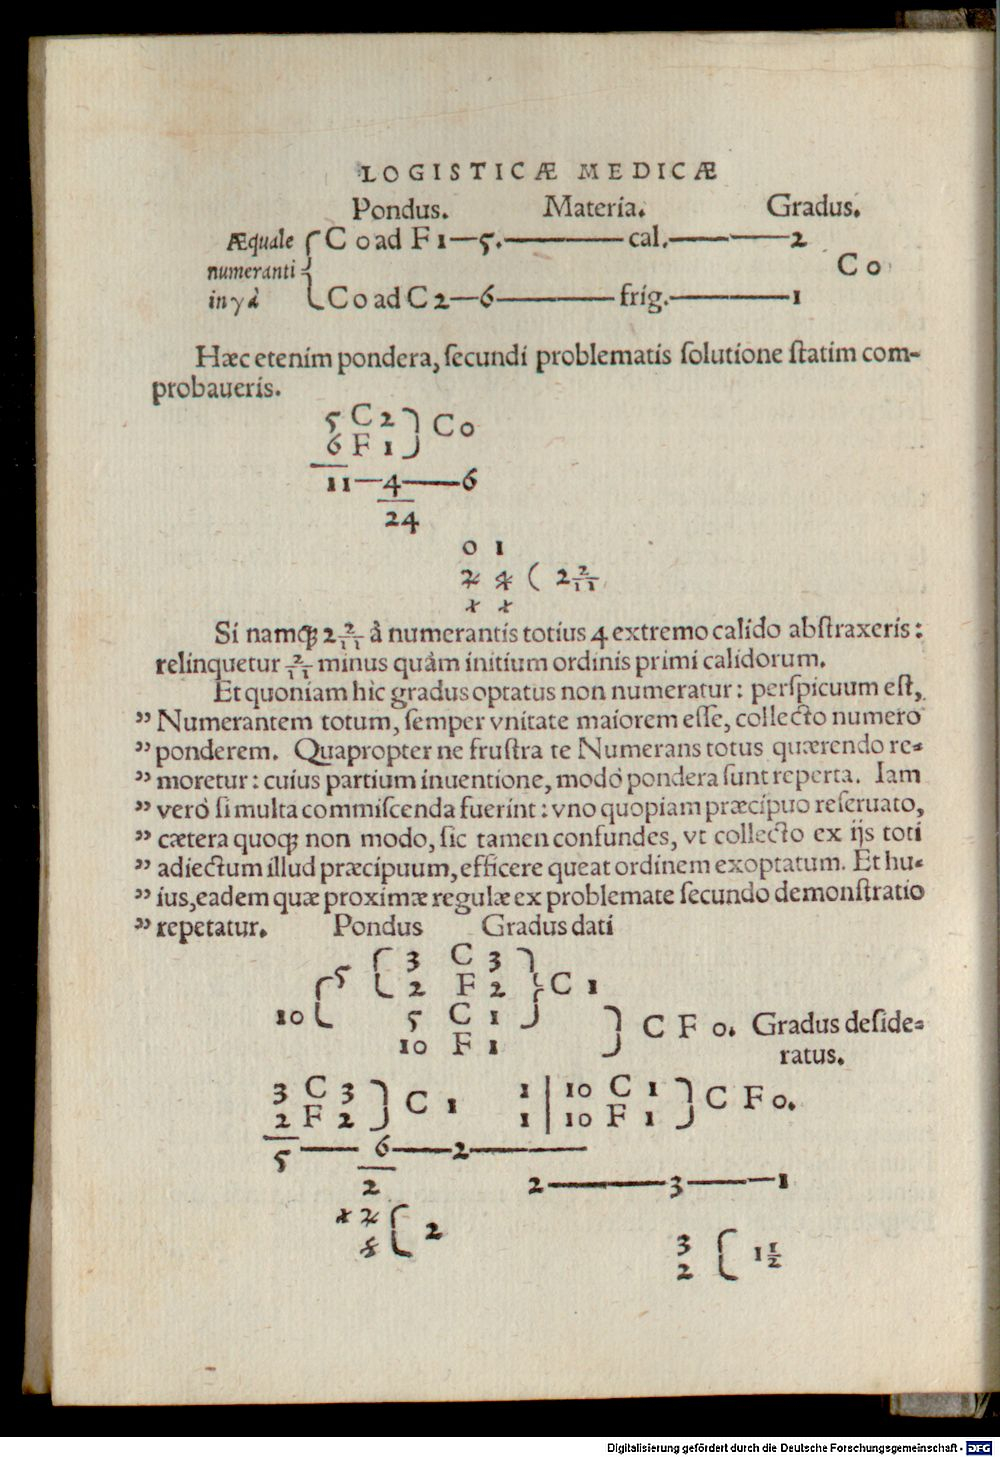 LOGISTICÆ MEDICÆ
Pondus. Materia. Gradus.
Æquale C o ad F 1—5.——cal.——2
numeranti C o
in γ à C o ad C 2—6——frig.——1
Hæc etenim pondera, secundi problematis solutione statim com-
probaueris.
5 C 2 } C o
6 F 1
11—4——6
24
0 1
2 4 ( 2 2/11
1 1
Si namq; 2 2/11 à numerantis totius 4 extremo calido abstraxeris:
relinquetur 2/11 minus quàm initium ordinis primi calidorum.
Et quoniam hic gradus optatus non numeratur: perspicuum est,
” Numerantem totum, semper vnitate maiorem esse, collecto numero
” ponderem. Quapropter ne frustra te Numerans totus quærendo re-
” moretur: cuius partium inuentione, modò pondera sunt reperta. Iam
” verò si multa commiscenda fuerint: vno quopiam præcipuo reseruato,
” cætera quoq; non modo, sic tamen confundes, vt collecto ex ijs toti
” adiectum illud præcipuum, efficere queat ordinem exoptatum. Et hu-
” ius, eadem quæ proximæ regulæ ex problemate secundo demonstratio
” repetatur. Pondus Gradus dati
5 { 3 C 3
2 F 2 } C 1
10 5 C 1 } C F o. Gradus deside-
10 F 1 ratus.
3 C 3 } C 1 1 | 10 C 1 } C F o.
2 F 2 1 | 10 F 1
5—— 6——2——
2 2——3——1
1 2 { 2
5
3 { 1 1/2
2
Digitalisierung gefördert durch die Deutsche Forschungsgemeinschaft - DFG